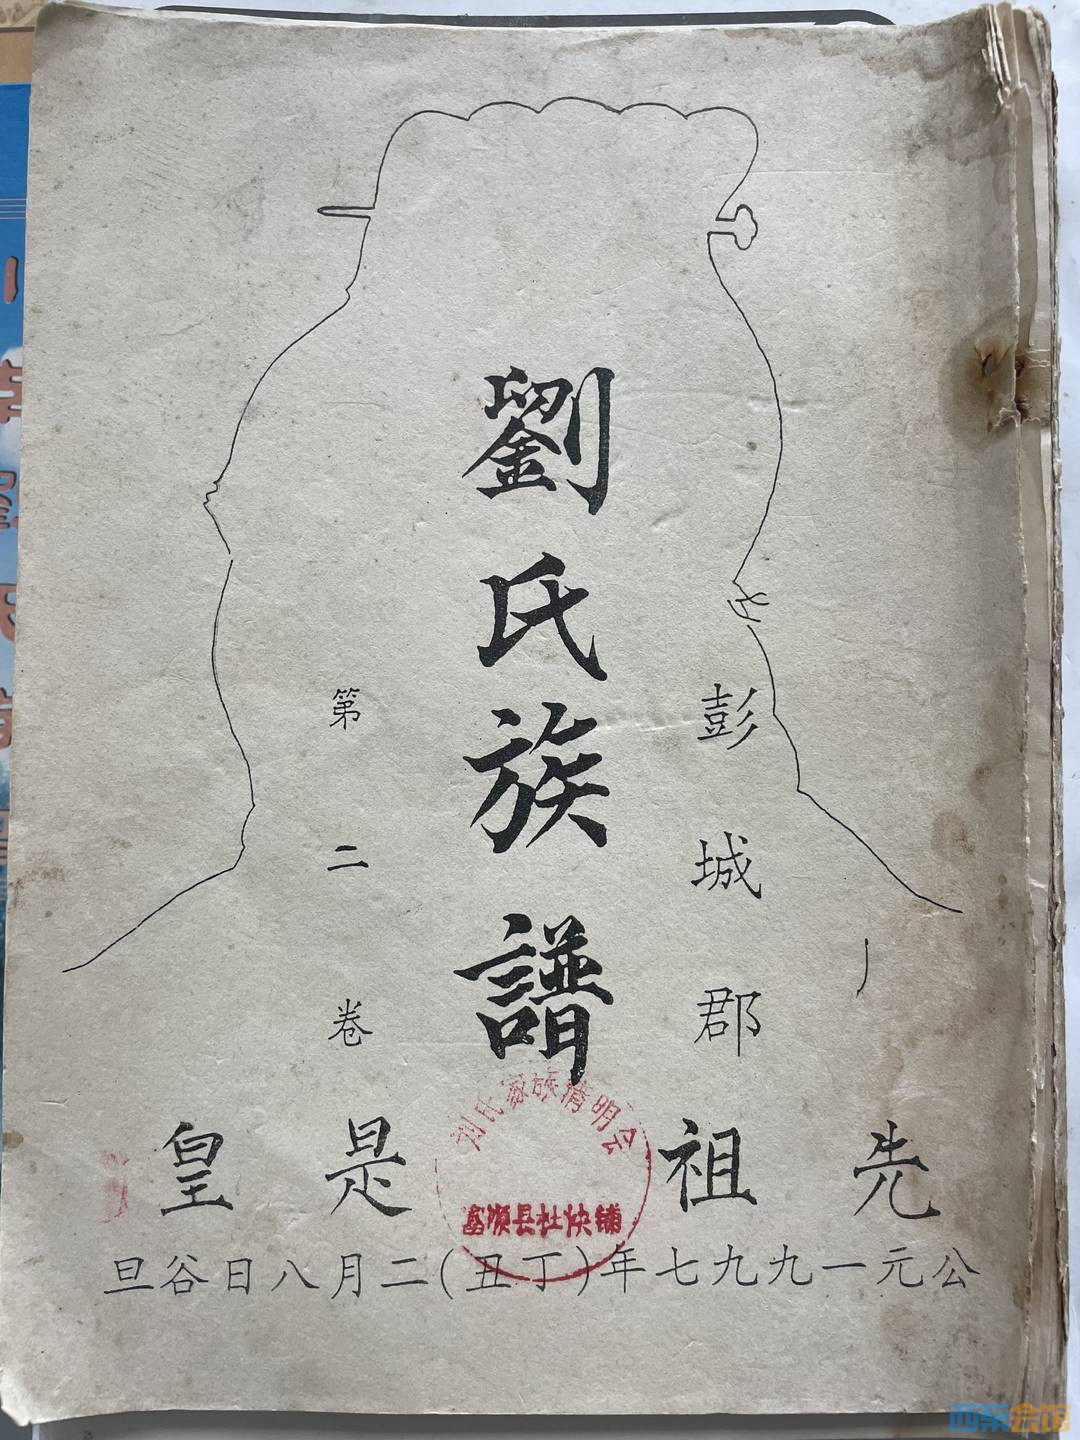 彭城郡
劉氏族譜
第二卷
先祖是皇
公元一九九七年(丁丑)二月八日谷旦
刘氏家族清明会
富顺县杜快铺
西祠会馆